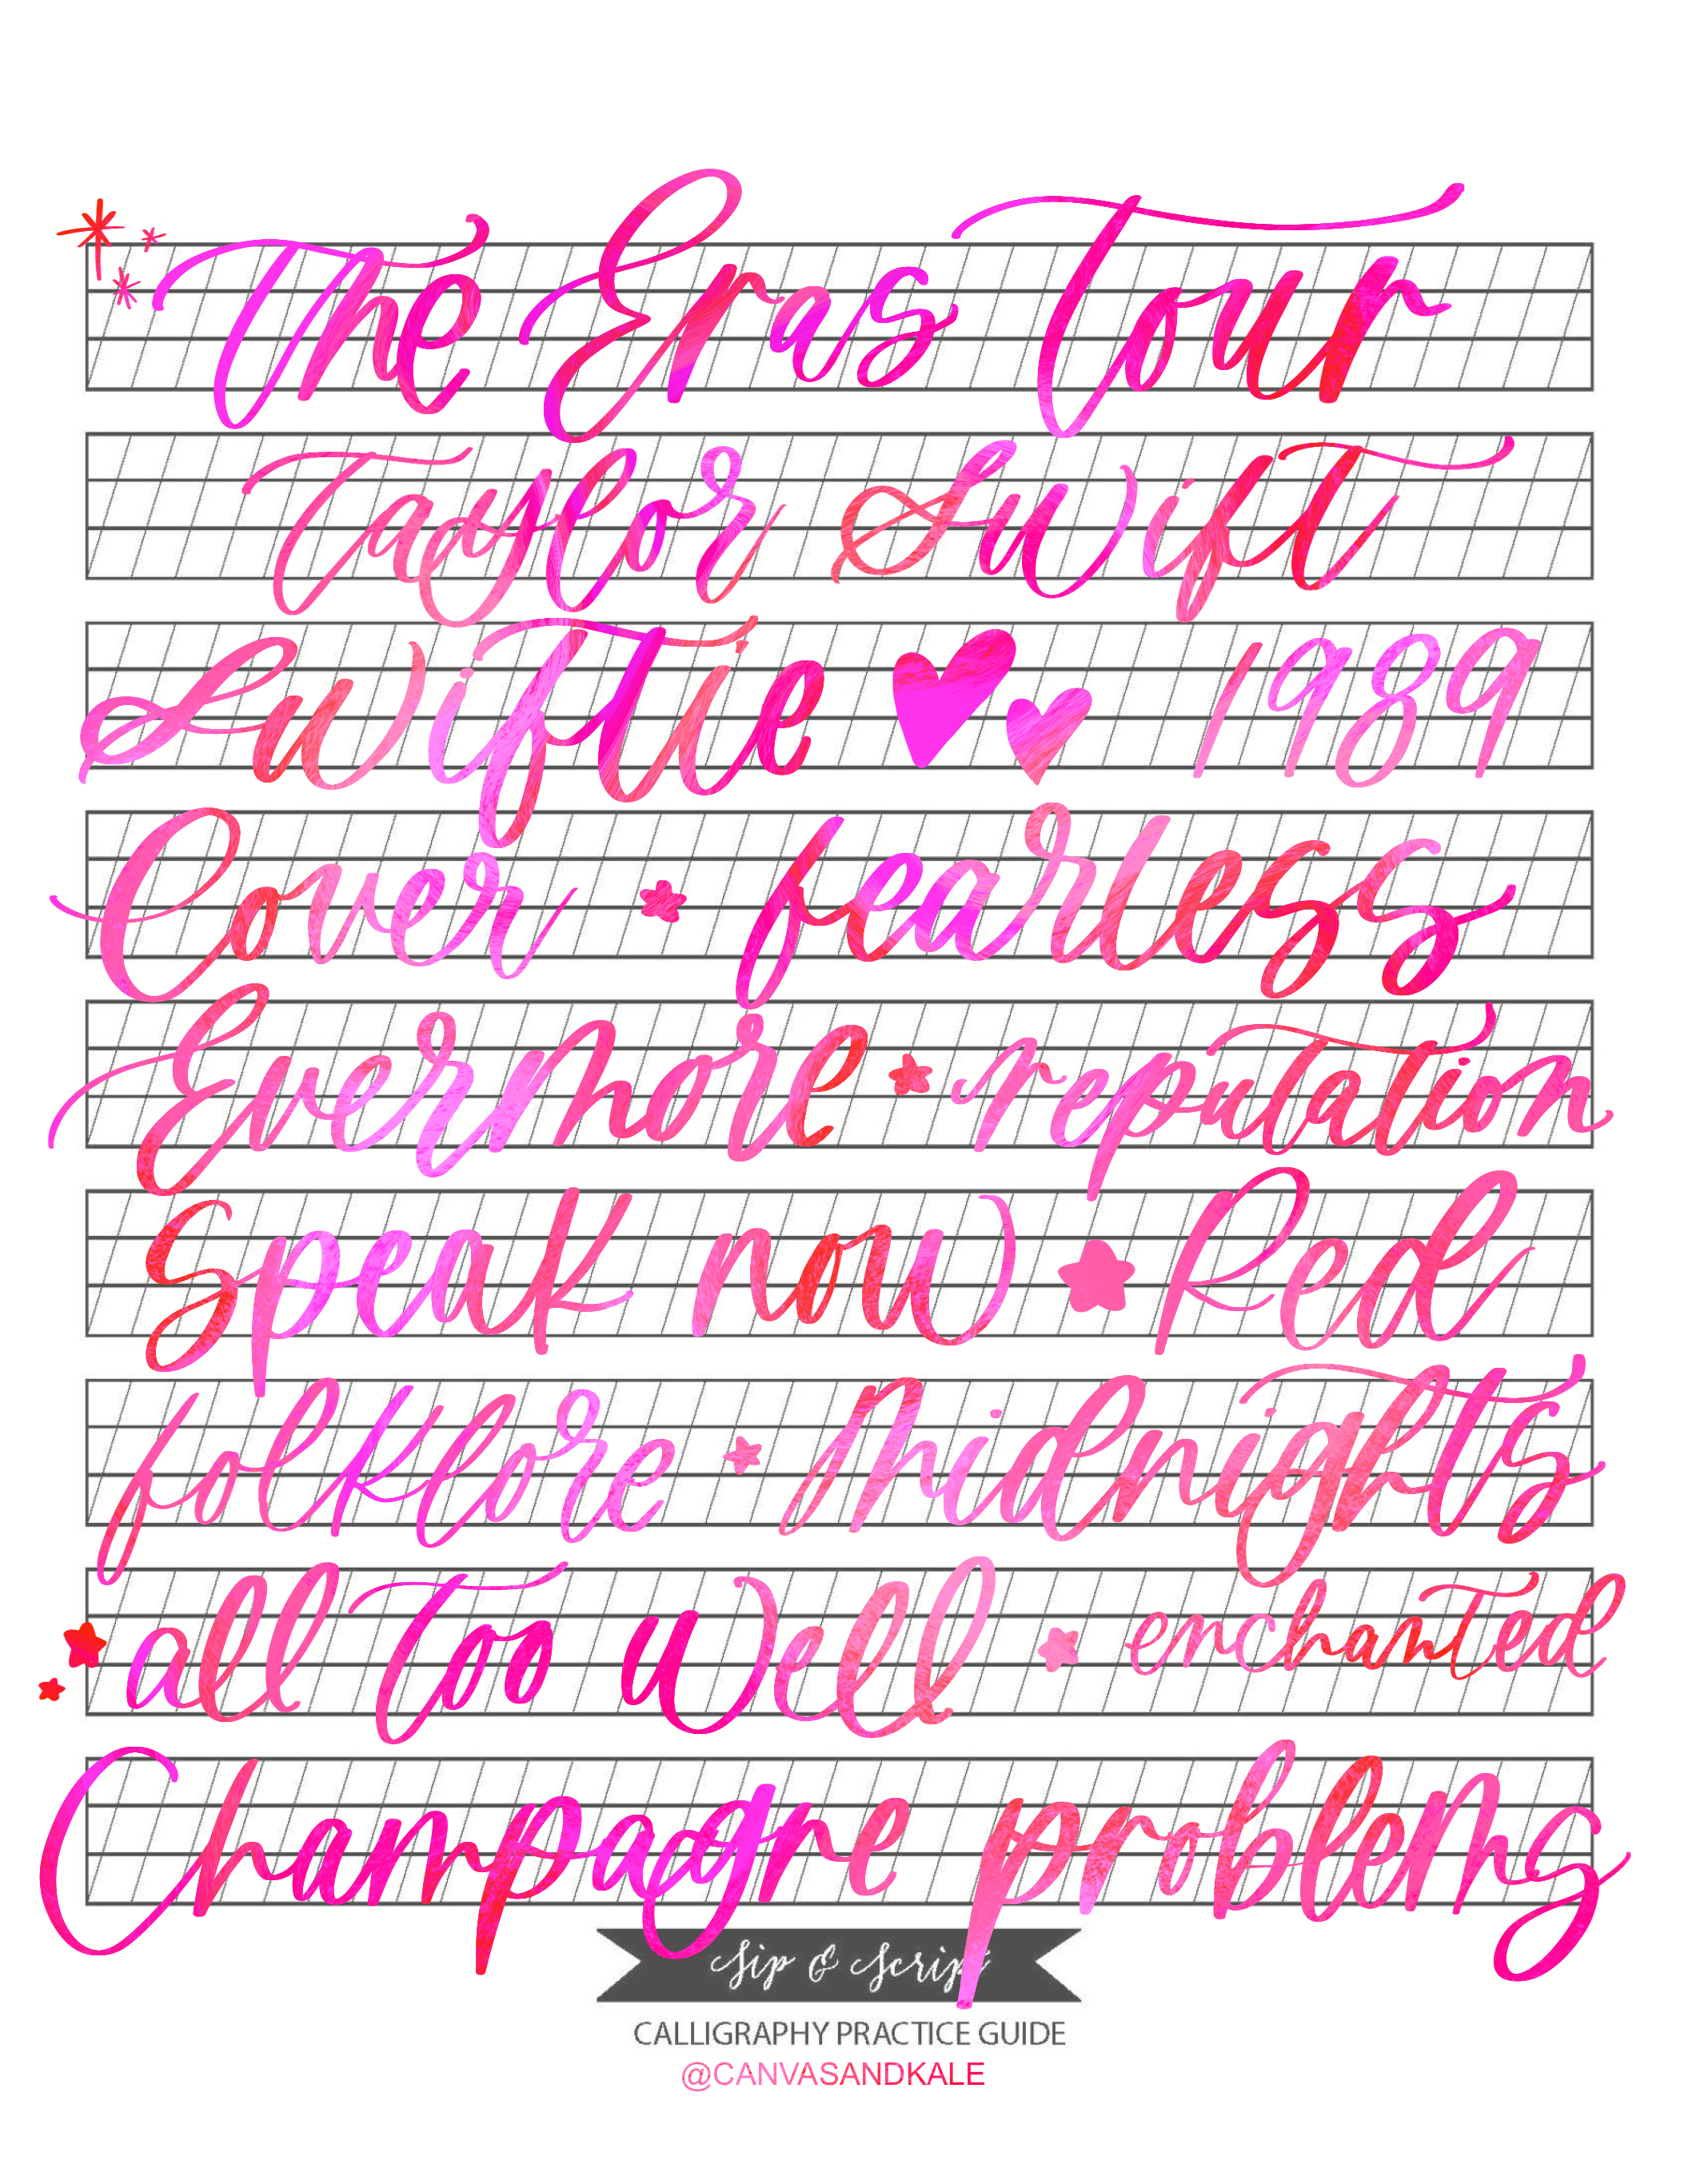 The Eras Tour
Taylor Swift
Swiftie 1989
Lover fearless
Evermore reputation
Speak now Red
folklore Midnights
all too well enchanted
Champagne problems
Sip & Script
CALLIGRAPHY PRACTICE GUIDE
@CANVASANDKALE